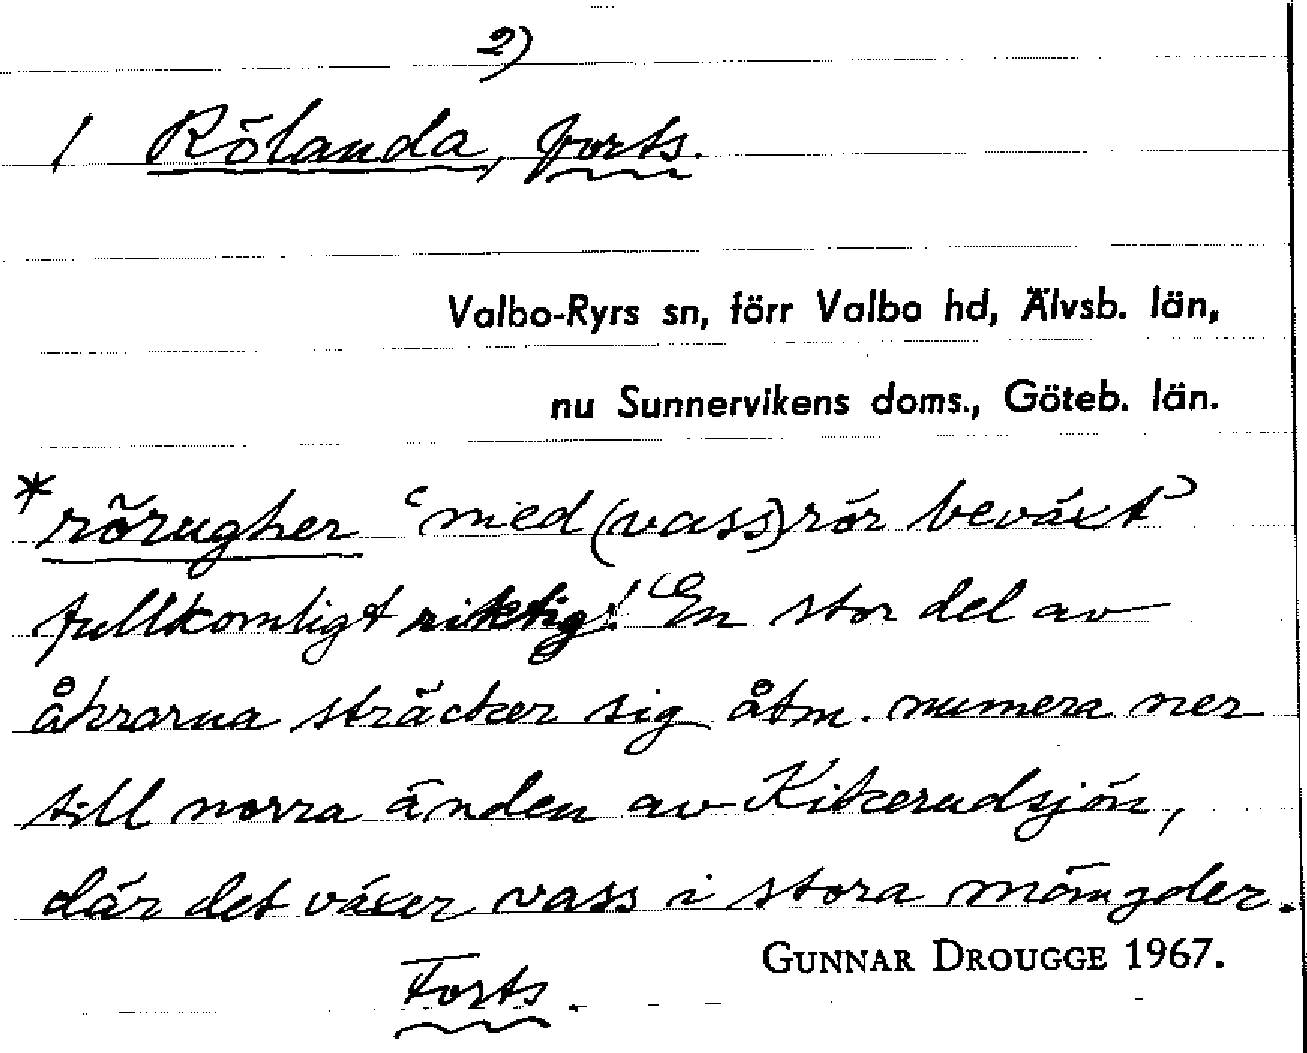 2)
1 Rölanda, forts.
Valbo-Ryrs sn, förr Valbo hd, Älvsb. län,
nu Sunnervikens doms., Göteb. län.
*rörugher “med (vass)rör beväxt”
fullkomligt riktig! En stor del av
åkrarna sträcker sig åtm. numera ner
till norra änden av Kikerudsjön,
där det växer vass i stora mängder.
GUNNAR DROUGGE 1967.
Forts.